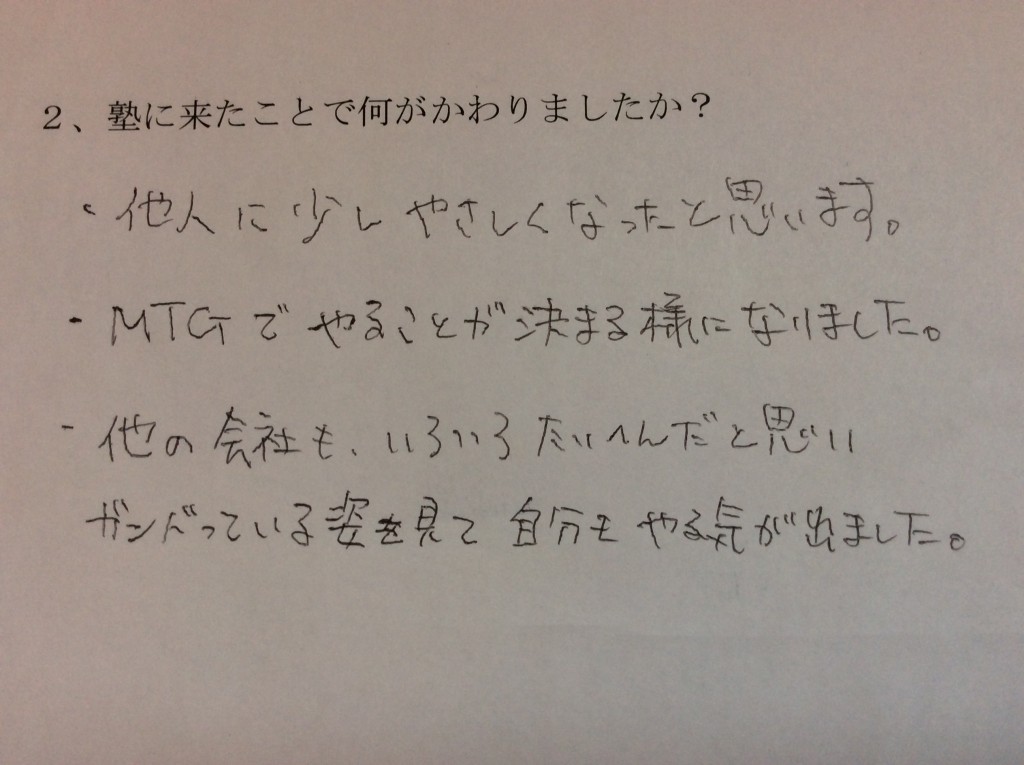 2、塾に来たことで何がかわりましたか？
・他人に少しやさしくなったと思います。
・MTGでやることが決まる様になりました。
・他の会社も、いろいろたいへんだと思い
ガンバっている姿を見て自分もやる気が出ました。